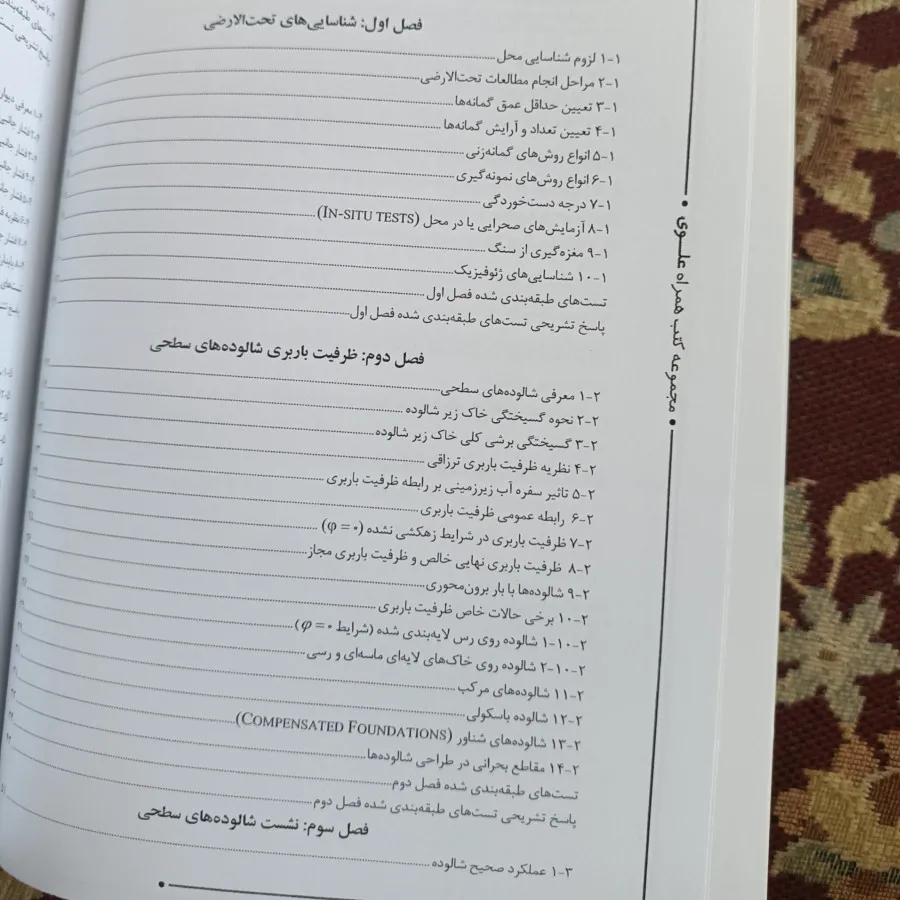 فصل اول: شناسایی‌های تحت‌الارضی
۱-۱ لزوم شناسایی محل
۲-۱ مراحل انجام مطالعات تحت‌الارضی
۳-۱ تعیین حداقل عمق گمانه‌ها
۴-۱ تعیین تعداد و آرایش گمانه‌ها
۵-۱ انواع روش‌های گمانه‌زنی
۶-۱ انواع روش‌های نمونه‌گیری
۷-۱ درجه دست‌خوردگی
۸-۱ آزمایش‌های صحرایی یا در محل (IN-SITU TESTS)
۹-۱ مغزه‌گیری از سنگ
۱۰-۱ شناسایی‌های ژئوفیزیک
تست‌های طبقه‌بندی شده فصل اول
پاسخ تشریحی تست‌های طبقه‌بندی شده فصل اول
فصل دوم: ظرفیت باربری شالوده‌های سطحی
۱-۲ معرفی شالوده‌های سطحی
۲-۲ نحوه گسیختگی خاک زیر شالوده
۳-۲ گسیختگی برشی کلی خاک زیر شالوده
۴-۲ نظریه ظرفیت باربری ترزاقی
۵-۲ تاثیر سفره آب زیرزمینی بر رابطه ظرفیت باربری
۶-۲ رابطه عمومی ظرفیت باربری
۷-۲ ظرفیت باربری در شرایط زهکشی نشده (φ = ۰)
۸-۲ ظرفیت باربری نهایی خالص و ظرفیت باربری مجاز
۹-۲ شالوده‌ها با بار برون‌محوری
۱۰-۲ برخی حالات خاص ظرفیت باربری
۱-۱۰-۲ شالوده روی رس لایه‌بندی شده (شرایط φ = ۰)
۲-۱۰-۲ شالوده روی خاک‌های لایه‌ای ماسه‌ای و رسی
۱۱-۲ شالوده‌های مرکب
۱۲-۲ شالوده باسکولی
۱۳-۲ شالوده‌های شناور (COMPENSATED FOUNDATIONS)
۱۴-۲ مقاطع بحرانی در طراحی شالوده‌ها
تست‌های طبقه‌بندی شده فصل دوم
پاسخ تشریحی تست‌های طبقه‌بندی شده فصل دوم
فصل سوم: نشست شالوده‌های سطحی
۱-۳ عملکرد صحیح شالوده
مجموعه کتب همراه علوی